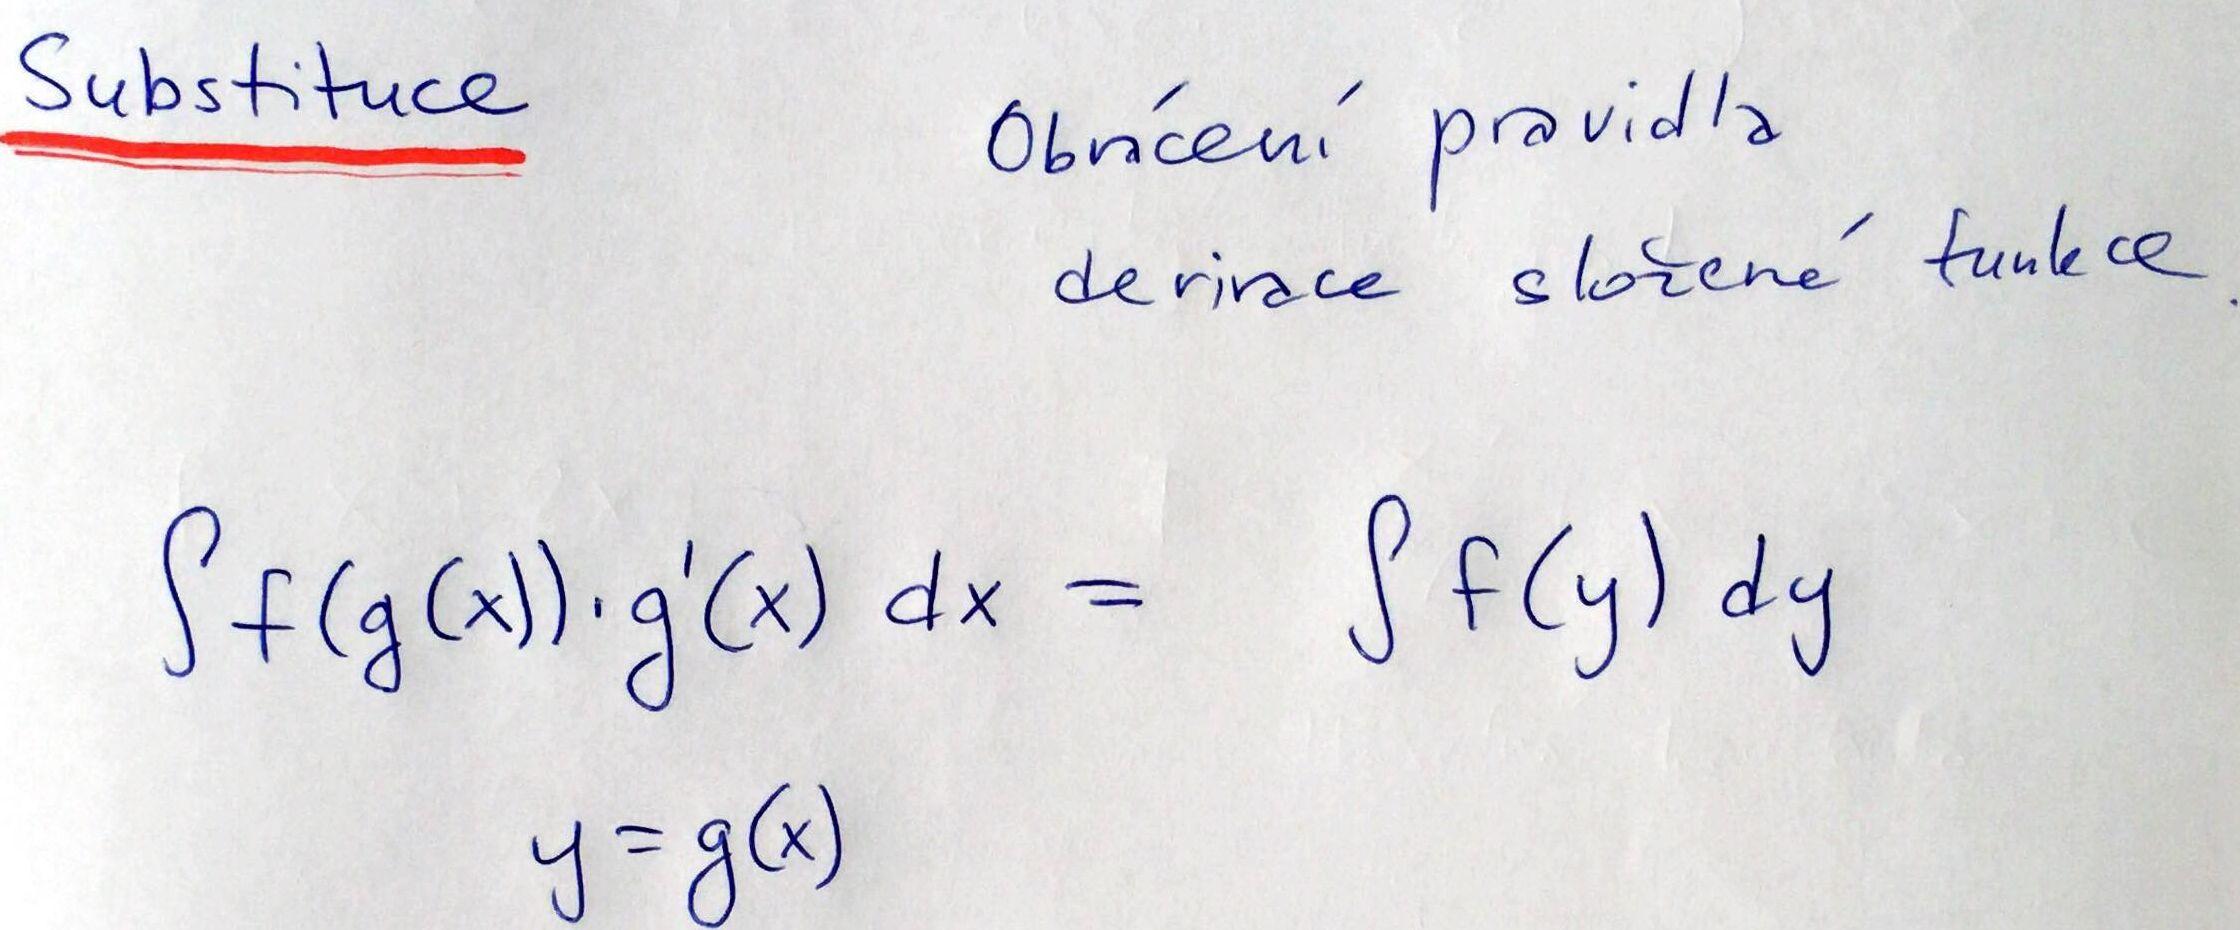 Substituce
Obrácení pravidla
derivace složené funkce.
∫ f(g(x)) · g'(x) dx = ∫ f(y) dy
y = g(x)